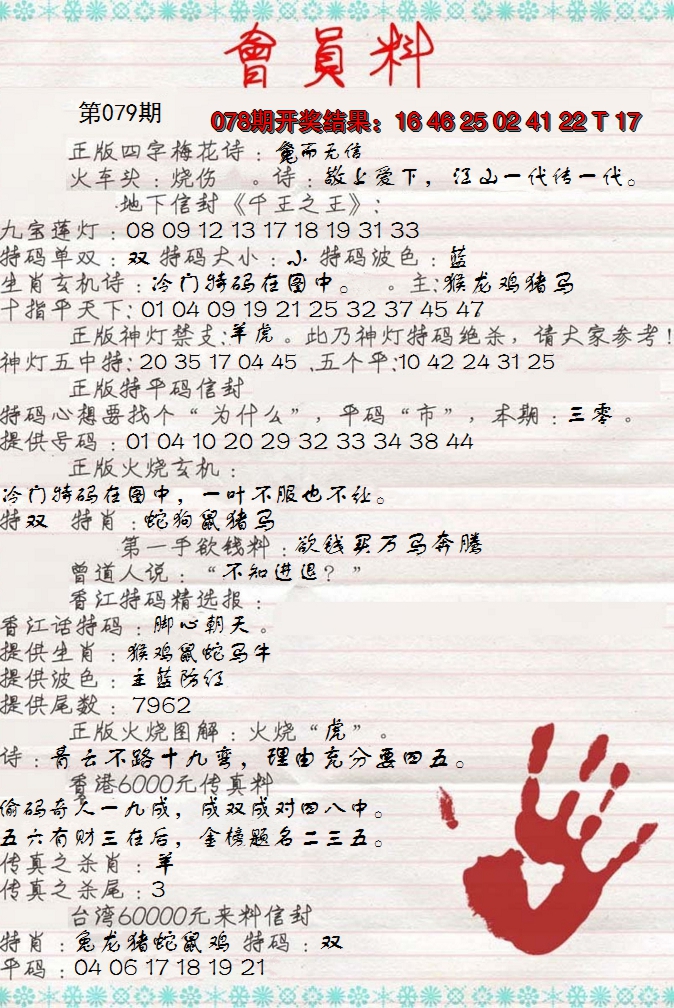 會員料
第079期
078期开奖结果：16 46 25 02 41 22 T 17
正版四字梅花诗：儳而无信
火车头：烧伤 。诗：敬上爱下，江山一代传一代。
地下信封《千王之王》：
九宝莲灯：08 09 12 13 17 18 19 31 33
特码单双：双 特码大小：小 特码波色：蓝
生肖玄机诗：冷门特码在图中。 。主：猴龙鸡猪马
十指平天下：01 04 09 19 21 25 32 37 45 47
正版神灯禁支：羊虎。此乃神灯特码绝杀，请大家参考！
神灯五中特：20 35 17 04 45 、五个平：10 42 24 31 25
正版特平码信封
特码心想要找个“为什么”，平码“市”，本期：三零。
提供号码：01 04 10 20 29 32 33 34 38 44
正版火烧玄机：
冷门特码在图中，一叶不服也不让。
特双 特肖：蛇狗鼠猪马
第一手欲钱料：欲钱买万马奔腾
曾道人说：“不知进退？”
香江特码精选报：
香江话特码：脚心朝天。
提供生肖：猴鸡鼠蛇马牛
提供波色：主蓝防红
提供尾数：7962
正版火烧图解：火烧“虎”。
诗：青云不路十九弯，理由充分要四五。
香港6000元传真料
偷码奇人一九成，成双成对四八中。
五六有财三在后，金榜题名二三五。
传真之杀肖：羊
传真之杀尾：3
台湾60000元来料信封
特肖：兔龙猪蛇鼠鸡 特码：双
平码：04 06 17 18 19 21